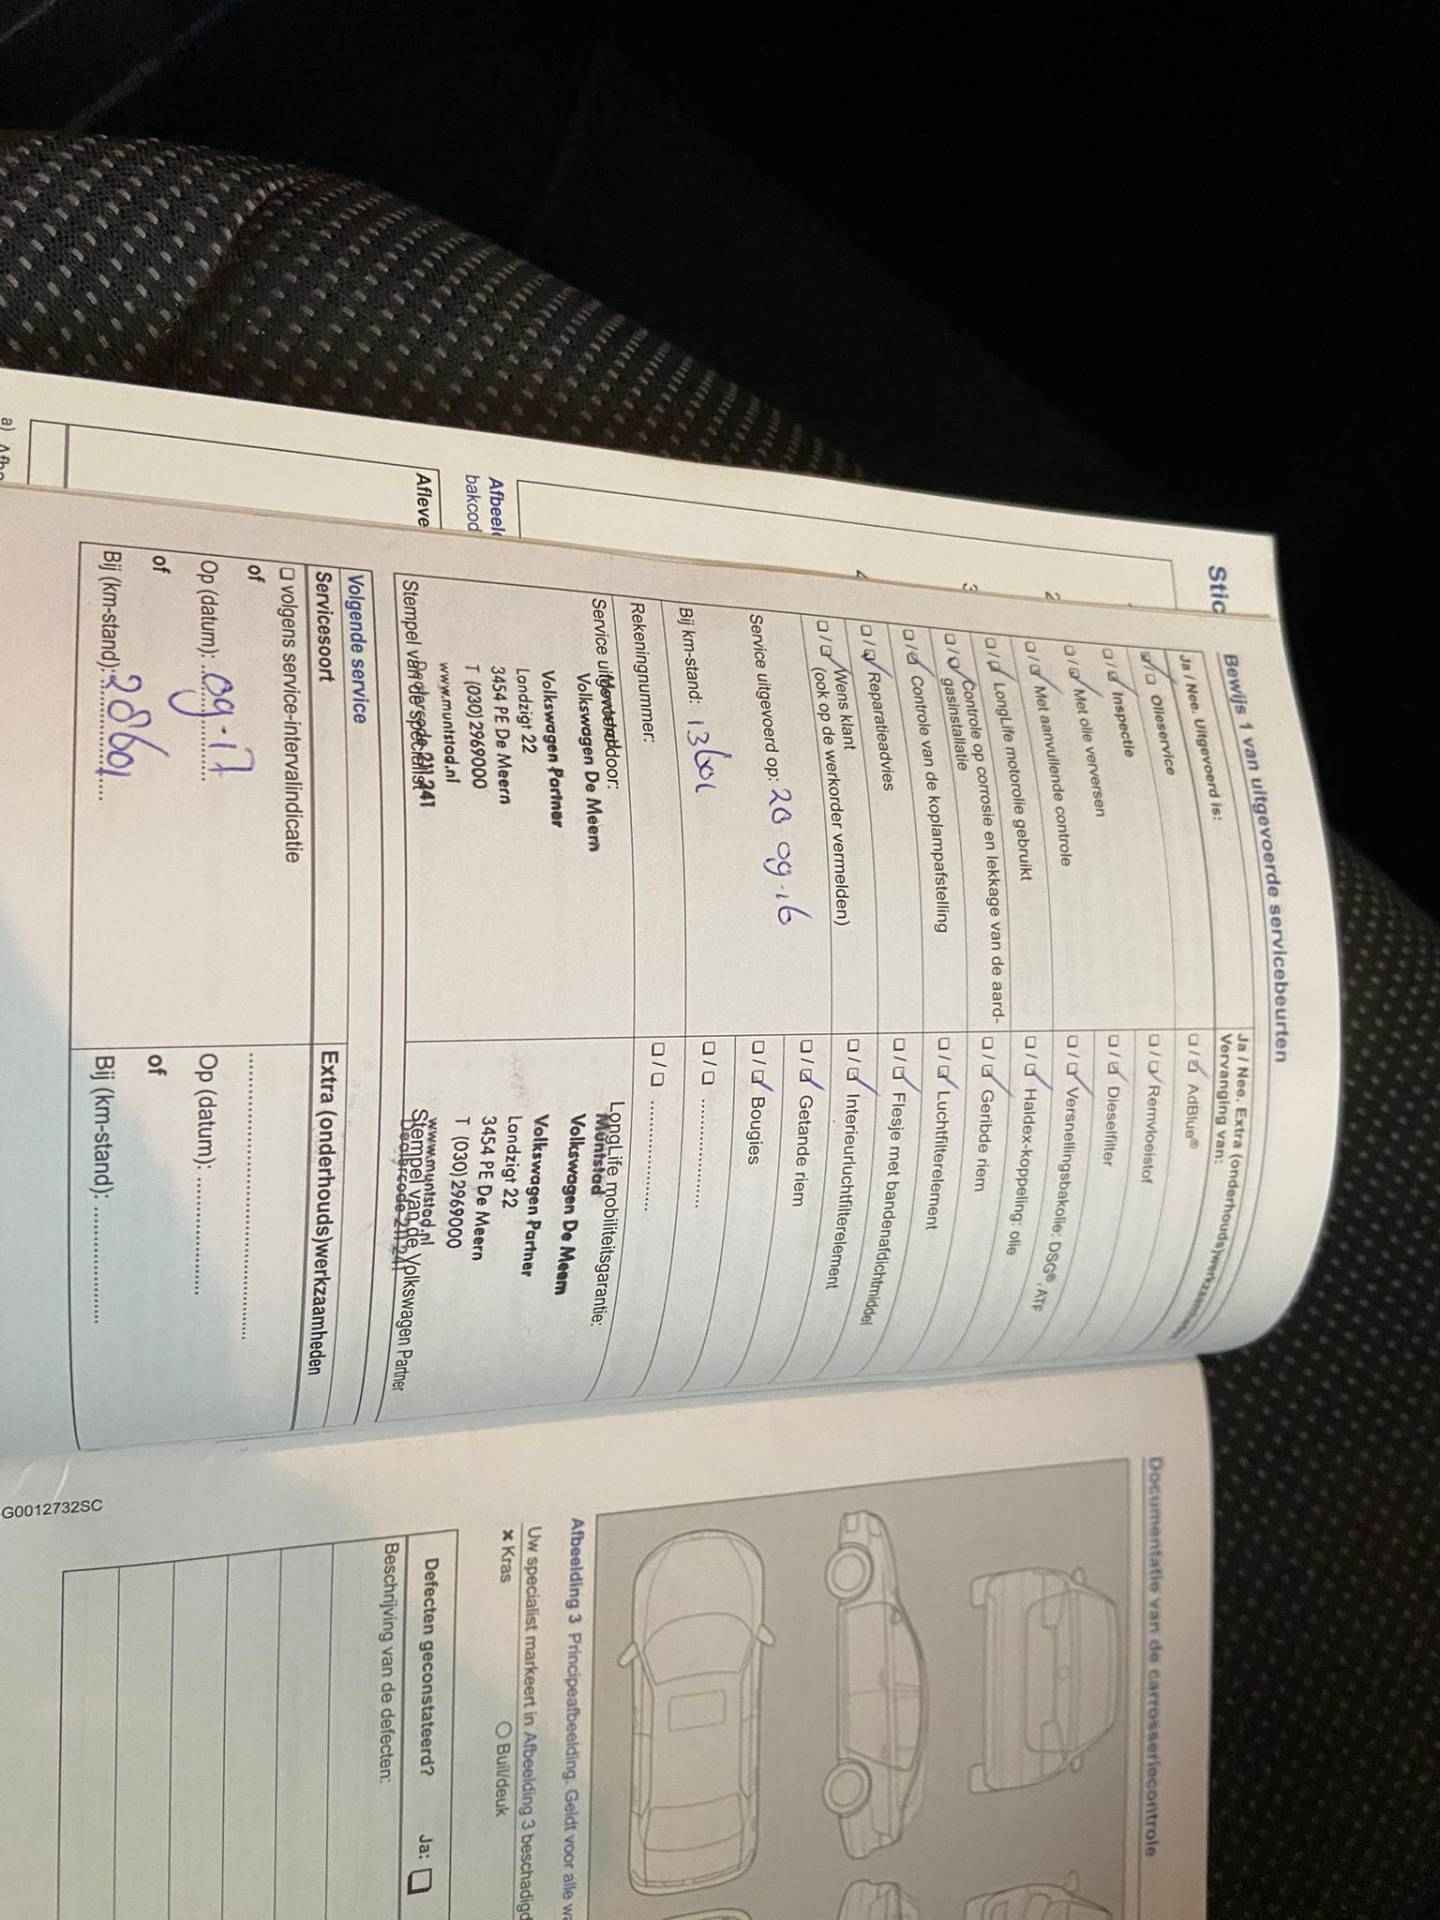 Stic
1
2
3
4
Afbeel
bakcod
Afleve
a) Afbe
Bewijs 1 van uitgevoerde servicebeurten
Ja / Nee. Uitgevoerd is:
Olieservice
Inspectie
Met olie verversen
Met aanvullende controle
LongLife motorolie gebruikt
Controle op corrosie en lekkage van de aard-
gasinstallatie
Controle van de koplampafstelling
Reparatieadvies
Wens klant
(ook op de werkorder vermelden)
Service uitgevoerd op: 20 09.16
Bij km-stand: 13601
Rekeningnummer:
Service uitgevoerd door:
Muntstad
Volkswagen De Meern
Volkswagen Partner
Landzigt 22
3454 PE De Meern
T (030)2969000
www.muntstad.nl
Dealercode 211 241
Stempel van de specialist
Ja / Nee. Extra (onderhouds)werkzaamheden
Vervanging van:
AdBlue®
Remvloeistof
Dieselfilter
Versnellingsbakolie: DSG®, ATF
Haldex-koppeling: olie
Geribde riem
Luchtfilterelement
Flesje met bandenafdichtmiddel
Interieurluchtfilterelement
Getande riem
Bougies
LongLife mobiliteitsgarantie:
Muntstad
Volkswagen De Meern
Volkswagen Partner
Landzigt 22
3454 PE De Meern
T (030)2969000
www.muntstad.nl
Dealercode 211 241
Stempel van de Volkswagen Partner
Volgende service
Servicesoort
volgens service-intervalindicatie
of
Op (datum): 09.17
of
Bij (km-stand): 28601
Extra (onderhouds)werkzaamheden
Op (datum):
of
Bij (km-stand):
Documentatie van de carrosseriecontrole
Afbeelding 3 Principeafbeelding. Geldt voor alle wa
Uw specialist markeert in Afbeelding 3 beschadigd
× Kras
○ Buil/deuk
Defecten geconstateerd? Ja:
Beschrijving van de defecten:
G0012732SC